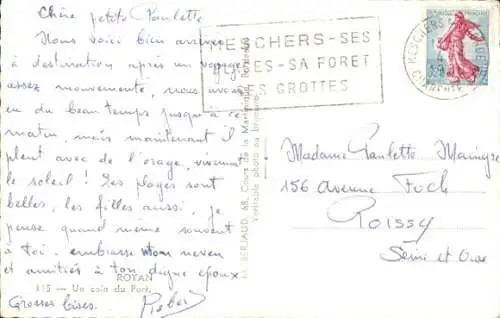 Chère petite Paulette
Nous voici bien arrivés
à destination après un voyage
assez mouvementé, nous avons
eu du beau temps jusqu'à ce
matin, mais maintenant il
pleut avec de l'orage, vivement
le soleil ! Les plages sont
belles, les filles aussi, je
pense quand même souvent
à toi. embrasse mon neveu
et amitiés à ton digne époux
Grosses bises.
MESCHERS-SES
PLAGES-SA FORET
SES GROTTES
MESCHERS
CHARENTE
M. BERJAUD, 68, Cours de la Martinique, Bordeaux
Véritable photo au bromure
ROYAN
115 — Un coin du Port.
Madame Paulette
156 Avenue Foch
ROISSY
Seine et Oise